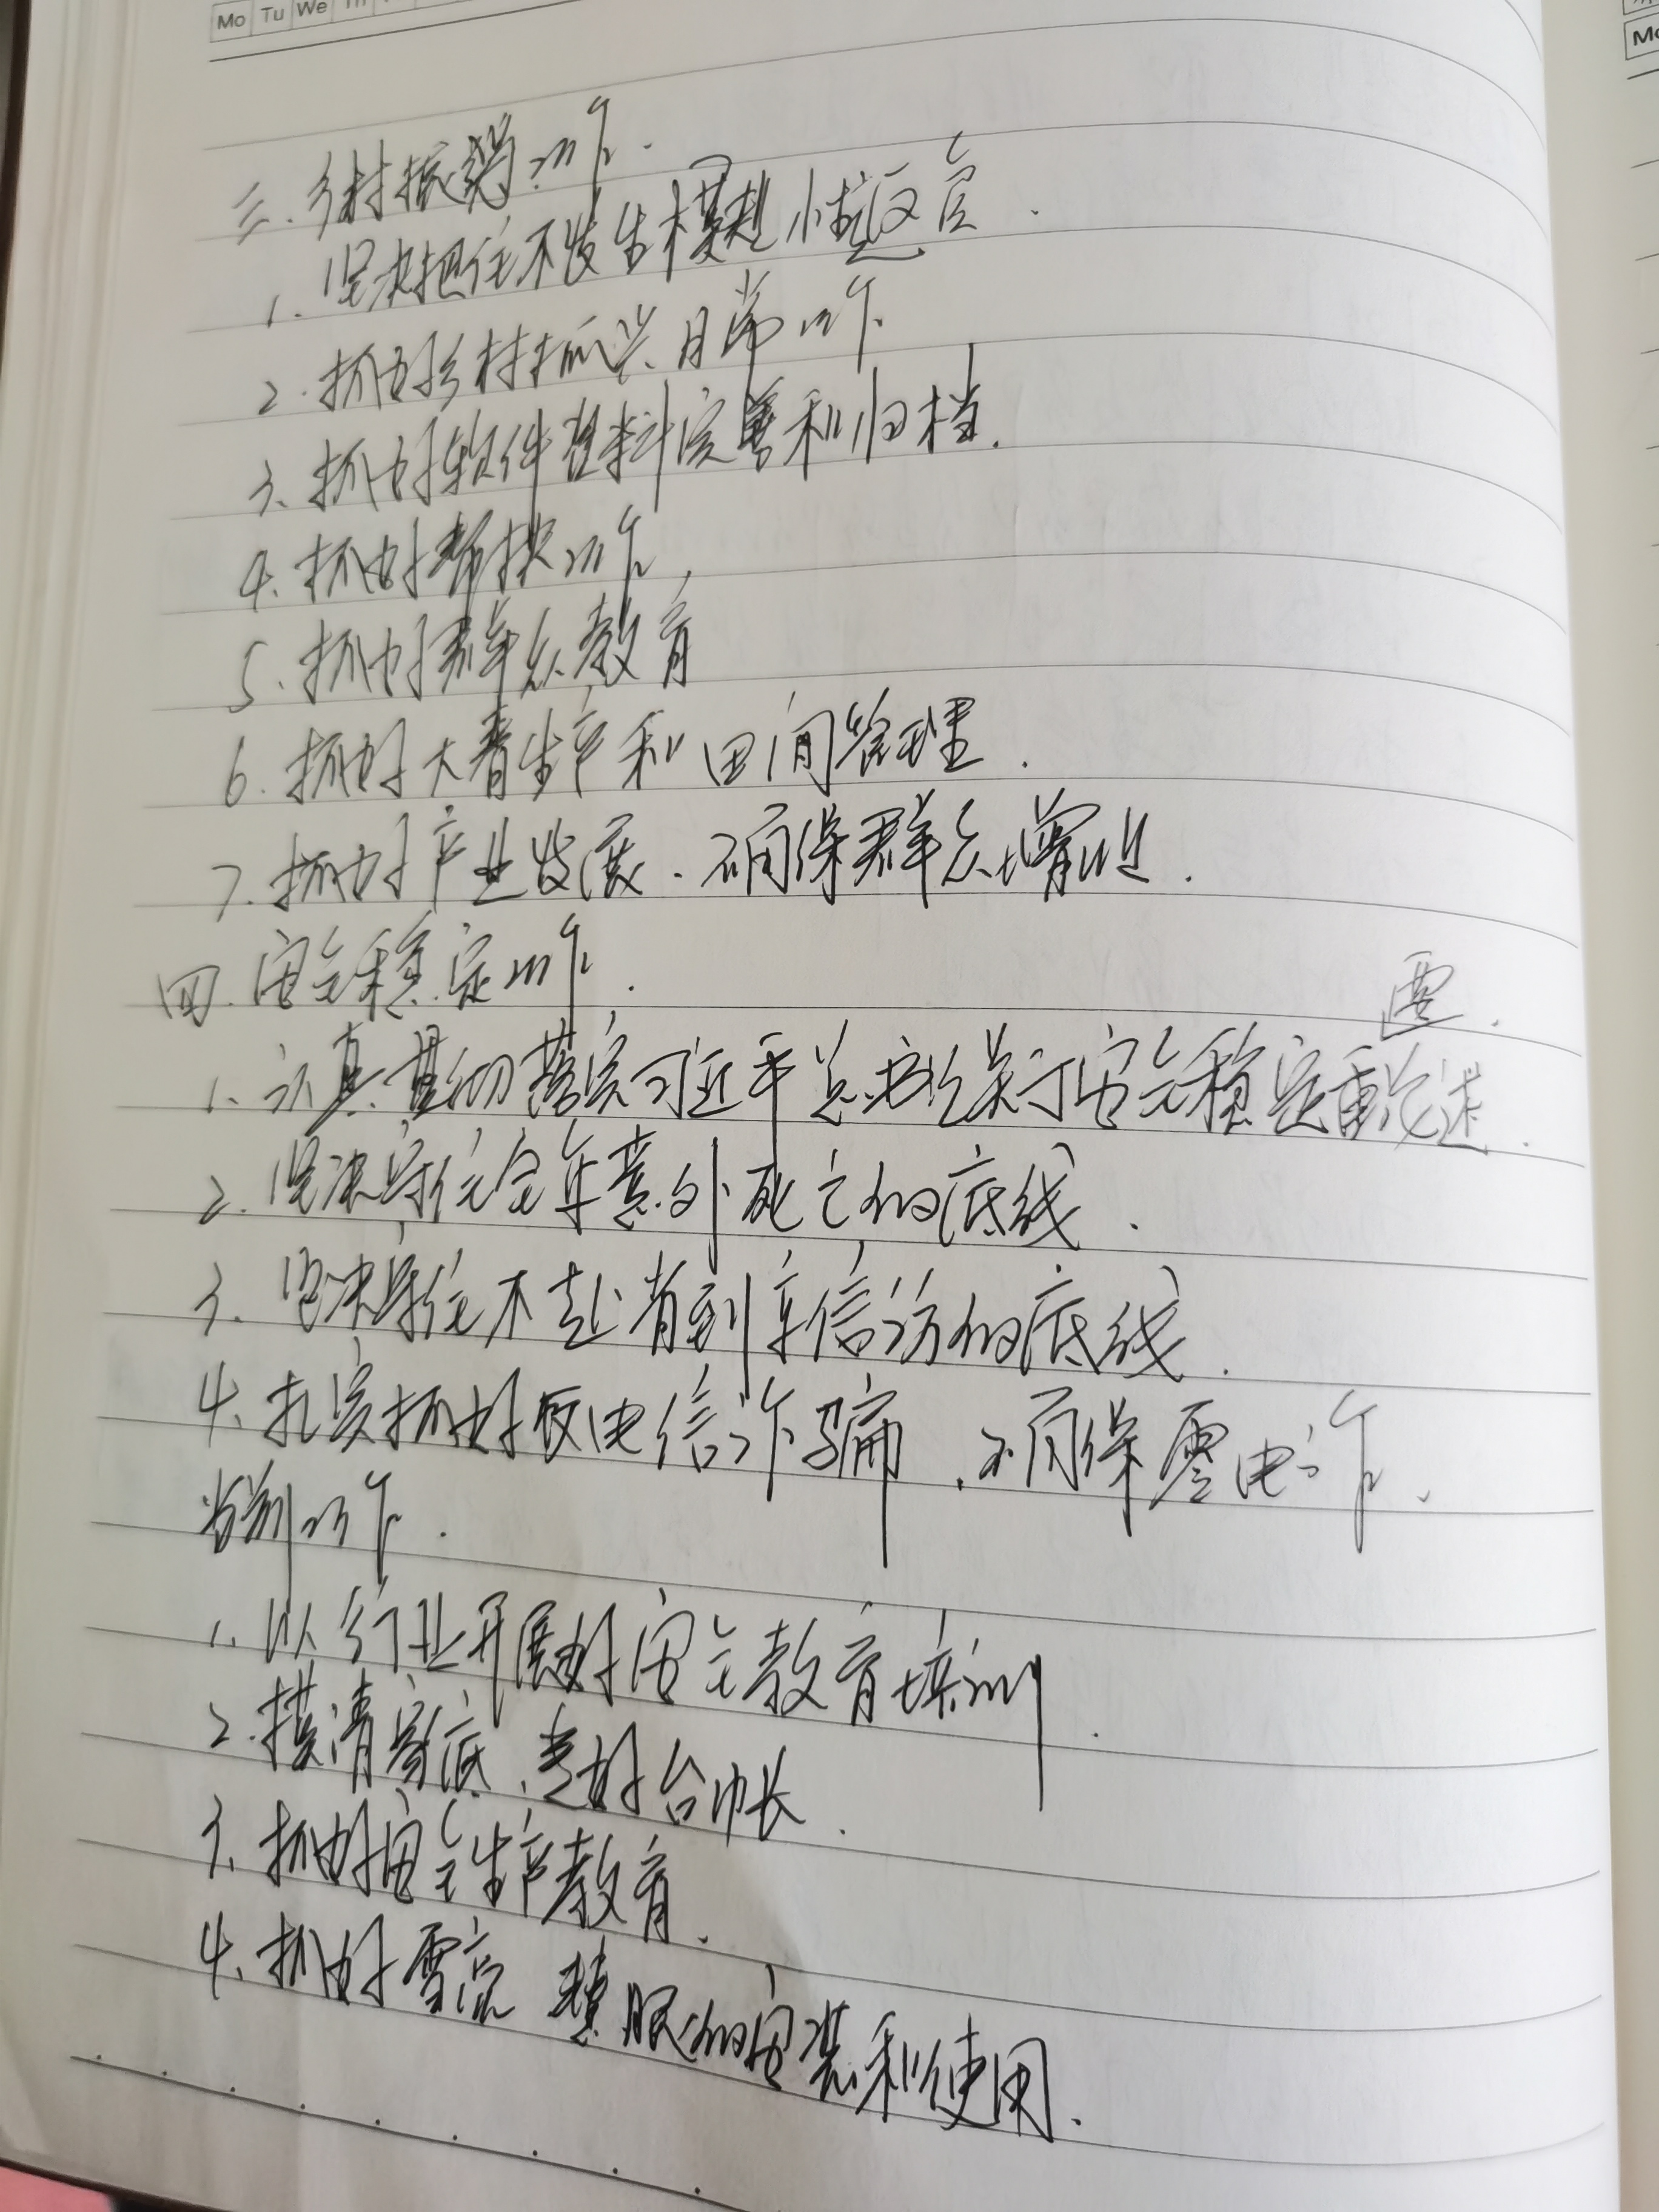 Mo Tu We Th
三.乡村振兴工作.
1.坚决把住不发生规模性返贫.
2.抓好乡村振兴日常工作
3、抓好软件资料完善和归档.
4.抓好帮扶工作,
5.抓好群众教育
6.抓好大春生产和田间管理.
7.抓好产业发展.确保群众增收.
四.安全稳定工作.
要.
1、认真贯彻落实习近平总书记关于安全稳定重论述.
2.坚决守住全年意外死亡的底线.
3.坚决守住不赴省到京信访的底线.
4、扎实抓好反电信诈骗,确保零电诈、
当前工作.
1、以行业开展好安全教育培训.
2.摸清家底,建好台帐.
3、抓好安全生产教育.
4、抓好雪亮 的安装和使用.